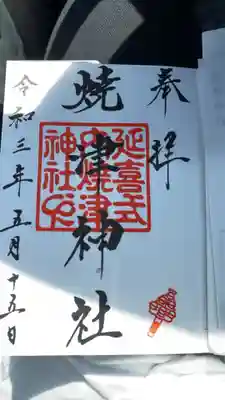 奉拝
焼津神社
延喜式
内焼津
神社也
令和三年五月十五日